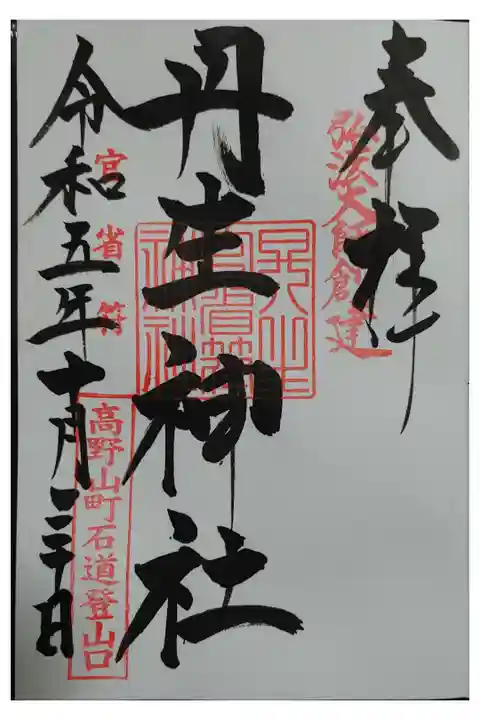 奉拝
弘法大師創建
丹生神社
令和五年十月二十日
官省符
高野山町石道登山口